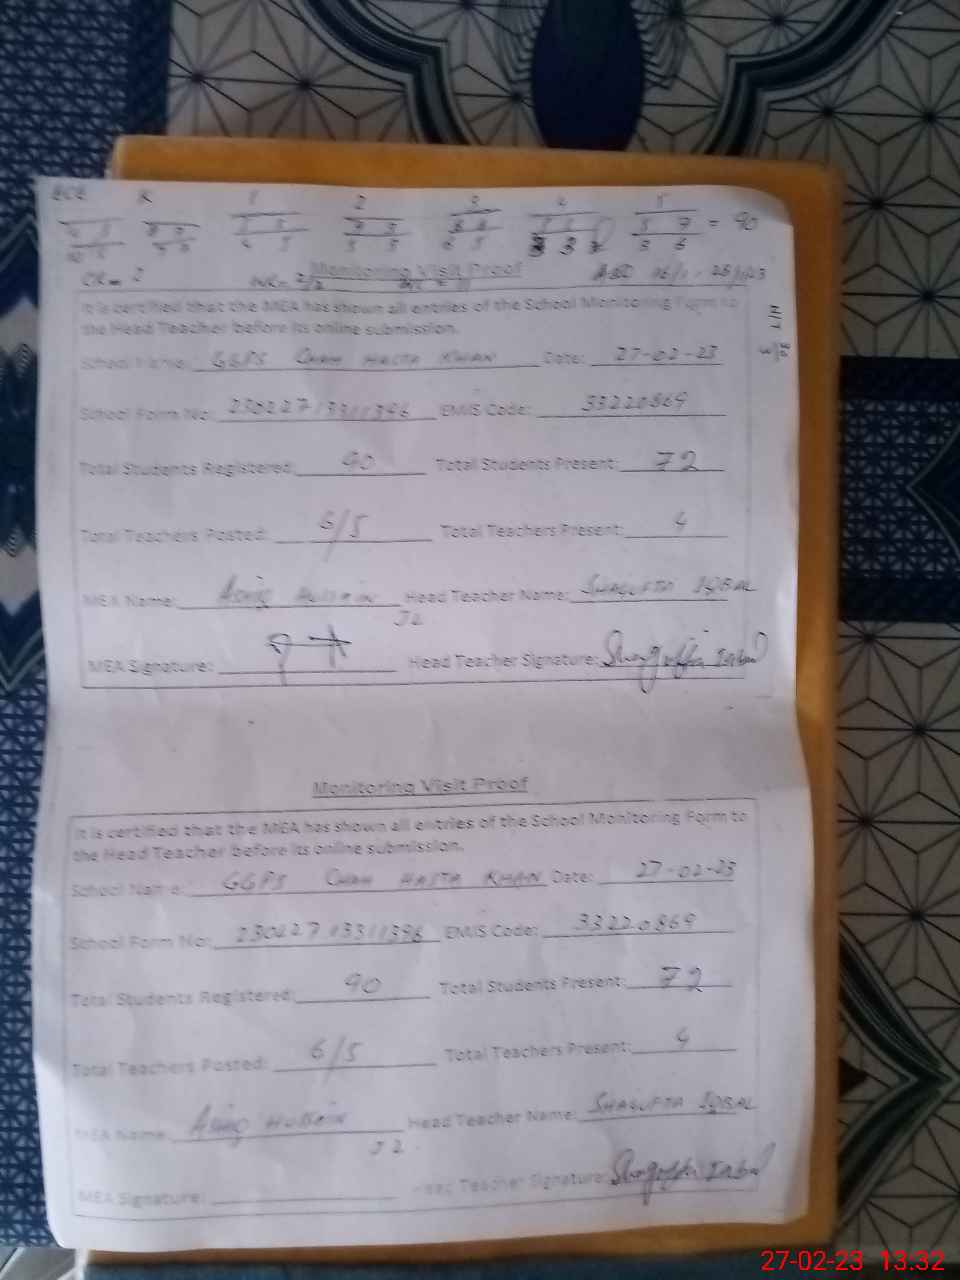 ECE K 1 2 3 4 5
= 90
CR = 2
Monitoring Visit Proof
It is certified that the MEA has shown all entries of the School Monitoring Form to
the Head Teacher before its online submission.
School Name: GGPS Chah HASTA KHAN Date: 27-02-23
School Form No: 23022713311396 EMIS Code: 33220869
Total Students Registered: 90 Total Students Present: 72
Total Teachers Posted: 6/5 Total Teachers Present: 4
MEA Name: Ashiq Hussain Head Teacher Name: SHAGUFTA IQBAL
J2
MEA Signature: Head Teacher Signature: Shagufta Iqbal
Monitoring Visit Proof
It is certified that the MEA has shown all entries of the School Monitoring Form to
the Head Teacher before its online submission.
School Name: GGPS CHAH HASTA KHAN Date: 27-02-23
School Form No: 23022713311396 EMIS Code: 33220869
Total Students Registered: 90 Total Students Present: 72
Total Teachers Posted: 6/5 Total Teachers Present: 4
MEA Name: Ashiq Hussain Head Teacher Name: SHAGUFTA IQBAL
J2
MEA Signature: Head Teacher Signature: Shagufta Iqbal
27-02-23 13:32